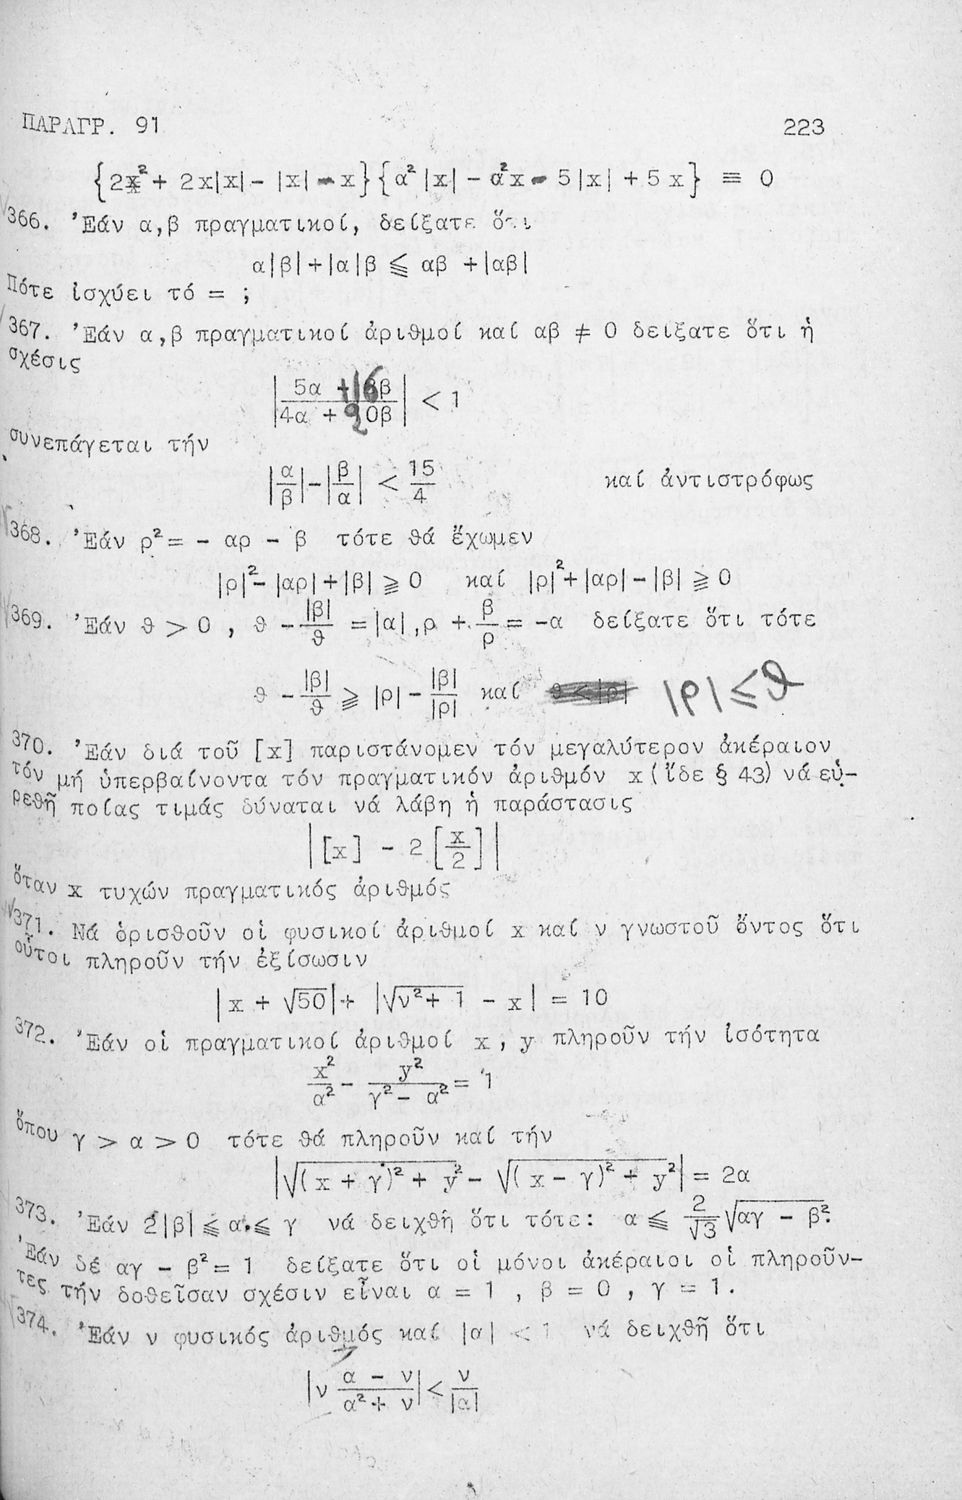 ΠΑΡΑΓΡ. 91 223
{2x²+ 2x|x|- |x| - x}{α²|x| - α²x - 5|x| + 5x} ≡ 0
366. Ἐάν α,β πραγματικοί, δείξατε ὅτι
α|β|+|α|β ≦ αβ +|αβ|
Πότε ἰσχύει τό = ;
367. Ἐάν α,β πραγματικοί ἀριθμοί καί αβ ≠ 0 δειξατε ὅτι ἡ
σχέσις
|(5α + 16β)/(4α + 20β)| < 1
συνεπάγεται τήν
|α/β|-|β/α| < 15/4 καί ἀντιστρόφως
368. Ἐάν ρ²= - αρ - β τότε θά ἔχωμεν
|ρ|²- |αρ|+|β| ≧ 0 καί |ρ|²+|αρ|-|β| ≧ 0
369. Ἐάν θ > 0 , θ - |β|/θ = |α| ,ρ + β/ρ = -α δείξατε ὅτι τότε
θ - |β|/θ ≧ |ρ| - |β|/|ρ| καί |ρ| ≤ θ
370. Ἐάν διά τοῦ [x] παριστάνομεν τόν μεγαλύτερον ἀκέραιον
τόν μή ὑπερβαίνοντα τόν πραγματικόν ἀριθμόν x (ἴδε § 43) νά εὑ-
ρεθῇ ποίας τιμάς δύναται νά λάβη ἡ παράστασις
|[x] - 2[x/2]|
ὅταν x τυχών πραγματικός ἀριθμός
371. Νά ὁρισθοῦν οἱ φυσικοί ἀριθμοί x καί ν γνωστοῦ ὄντος ὅτι
οὗτοι πληροῦν τήν ἐξίσωσιν
|x + √50|+ |√(ν²+ 1) - x| = 10
372. Ἐάν οἱ πραγματικοί ἀριθμοί x , y πληροῦν τήν ἰσότητα
x²/α² - y²/(γ² - α²) = 1
ὅπου γ > α > 0 τότε θά πληροῦν καί τήν
|√((x + γ)² + y²) - √((x - γ)² + y²)| = 2α
373. Ἐάν 2|β| ≦ α ≦ γ νά δειχθῇ ὅτι τότε: α ≦ 2/√3 √(αγ - β²).
Ἐάν δέ αγ - β²= 1 δείξατε ὅτι οἱ μόνοι ἀκέραιοι οἱ πληροῦν-
τες τήν δοθεῖσαν σχέσιν εἶναι α = 1 , β = 0 , γ = 1.
374. Ἐάν ν φυσικός ἀριθμός καί |α| < 1 νά δειχθῇ ὅτι
|ν (α - ν)/(α² + ν)| < ν/|α|